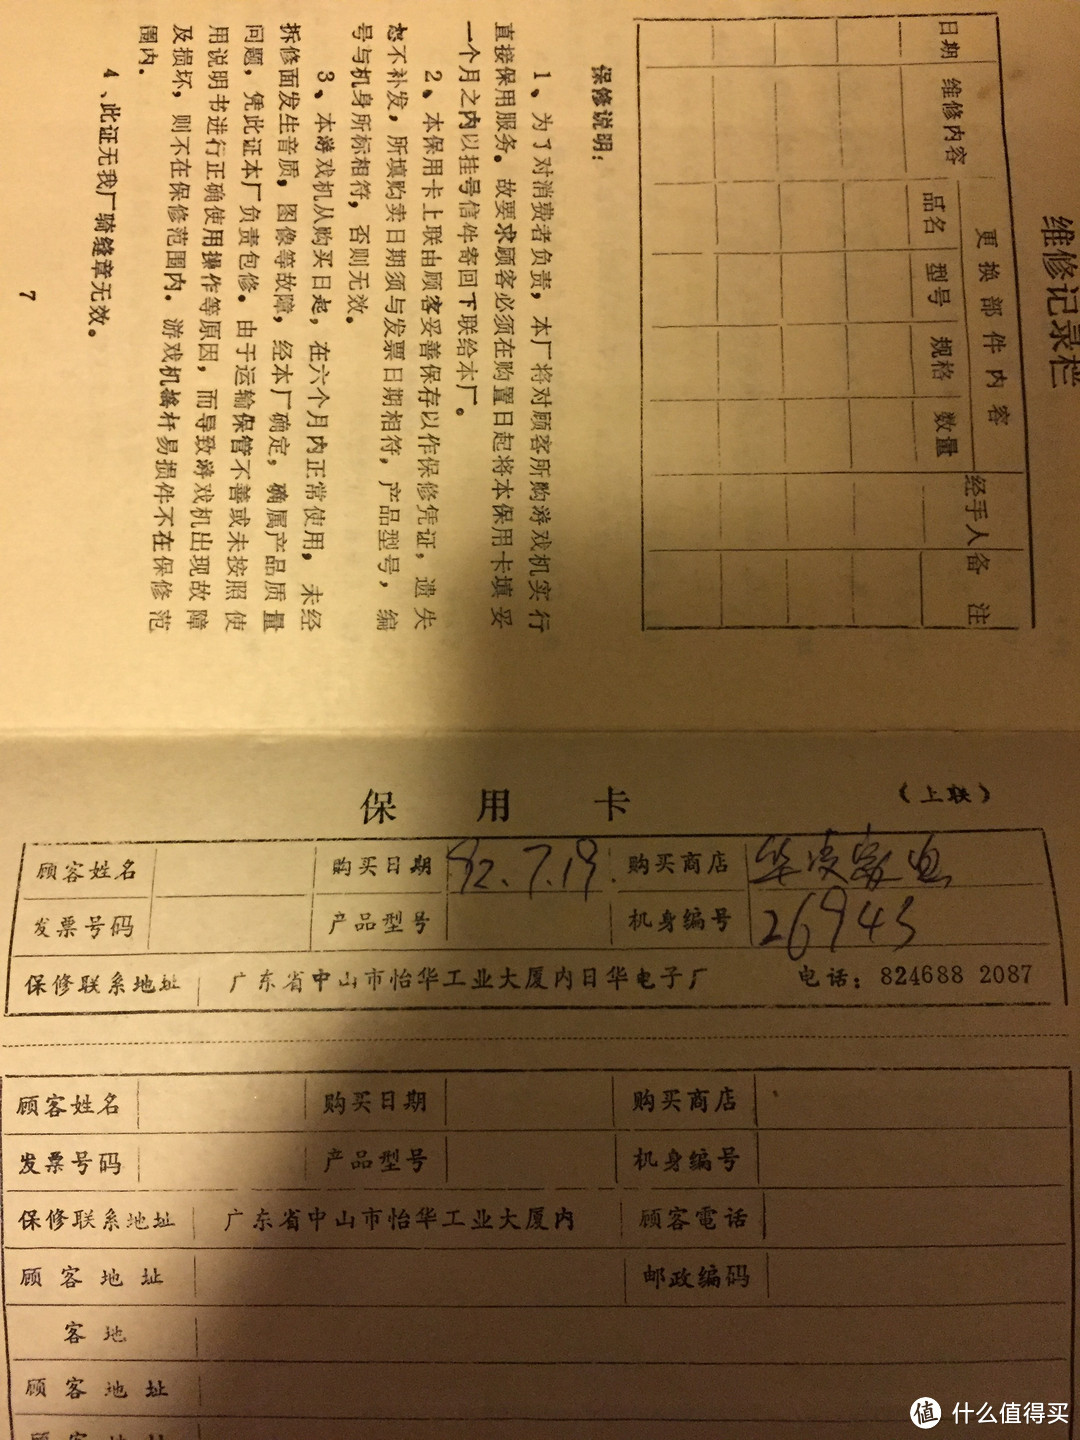 维修记录栏
日期 维修内容 更换部件内容 经手人 备注
品名 型号 规格 数量
保修说明：
1、为了对消费者负责，本厂将对顾客所购游戏机实行
直接保用服务。故要求顾客必须在购置日起将本保用卡填妥
一个月之内以挂号信件寄回下联给本厂。
2、本保用卡上联由顾客妥善保存以作保修凭证，遗失
恕不补发，所填购卖日期须与发票日期相符，产品型号，编
号与机身所标相符，否则无效。
3、本游戏机从购买日起，在六个月内正常使用，未经
拆修面发生音质，图像等故障，经本厂确定，确属产品质量
问题，凭此证本厂负责包修。由于运输保管不善或未按照使
用说明书进行正确使用操作等原因，而导致游戏机出现故障
及损坏，则不在保修范围内．游戏机摇杆易损件不在保修范
围内．
4、此证无我厂骑缝章无效。
7
保用卡 （上联）
顾客姓名 购买日期 92.7.19. 购买商店 华凌家电
发票号码 产品型号 机身编号 26943
保修联系地址 广东省中山市怡华工业大厦内日华电子厂 电话：824688 2087
顾客姓名 购买日期 购买商店
发票号码 产品型号 机身编号
保修联系地址 广东省中山市怡华工业大厦内 顾客電话
顾客地址 邮政编码
客地
顾客地址
顾客地址
值 什么值得买